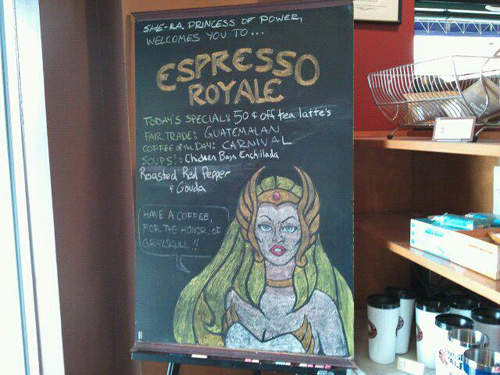 SHE-RA, PRINCESS OF POWER,
WELCOMES YOU TO...
ESPRESSO
ROYALE
TODAY'S SPECIAL: 50¢ off tea latte's
FAIR TRADE: GUATEMALAN
COFFEE of the DAY: CARNIVAL
SOUPS: Chicken Baja Enchilada
Roasted Red Pepper
& Gouda
HAVE A COFFEE,
FOR THE HONOR OF
GRAYSKULL!!